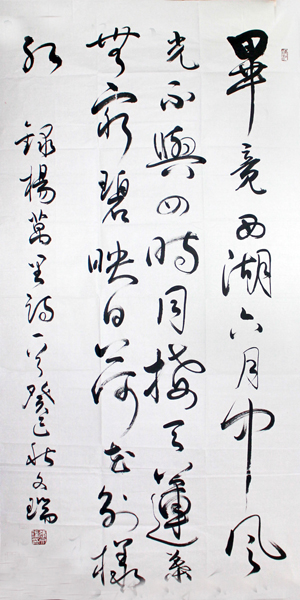 畢竟西湖六月中風
光不與四時同接天蓮葉
無窮碧映日荷花別樣
紅
錄楊萬里詩一首癸巳秋文瑞